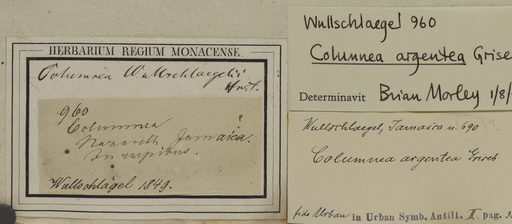 HERBARIUM REGIUM MONACENSE.
Columnea Wullschlaegelii
Hnst.
960
Columnea
Nazareth, Jamaica.
In rupibus.
Wullschlägel 1849.
Wullschlaegel 960
Columnea argentea Grise
Determinavit Brian Morley 1/8/
Wullschlaegel, Jamaica n. 690
Columnea argentea Griseb.
fide Urban in Urban Symb. Antill. II. pag. 3